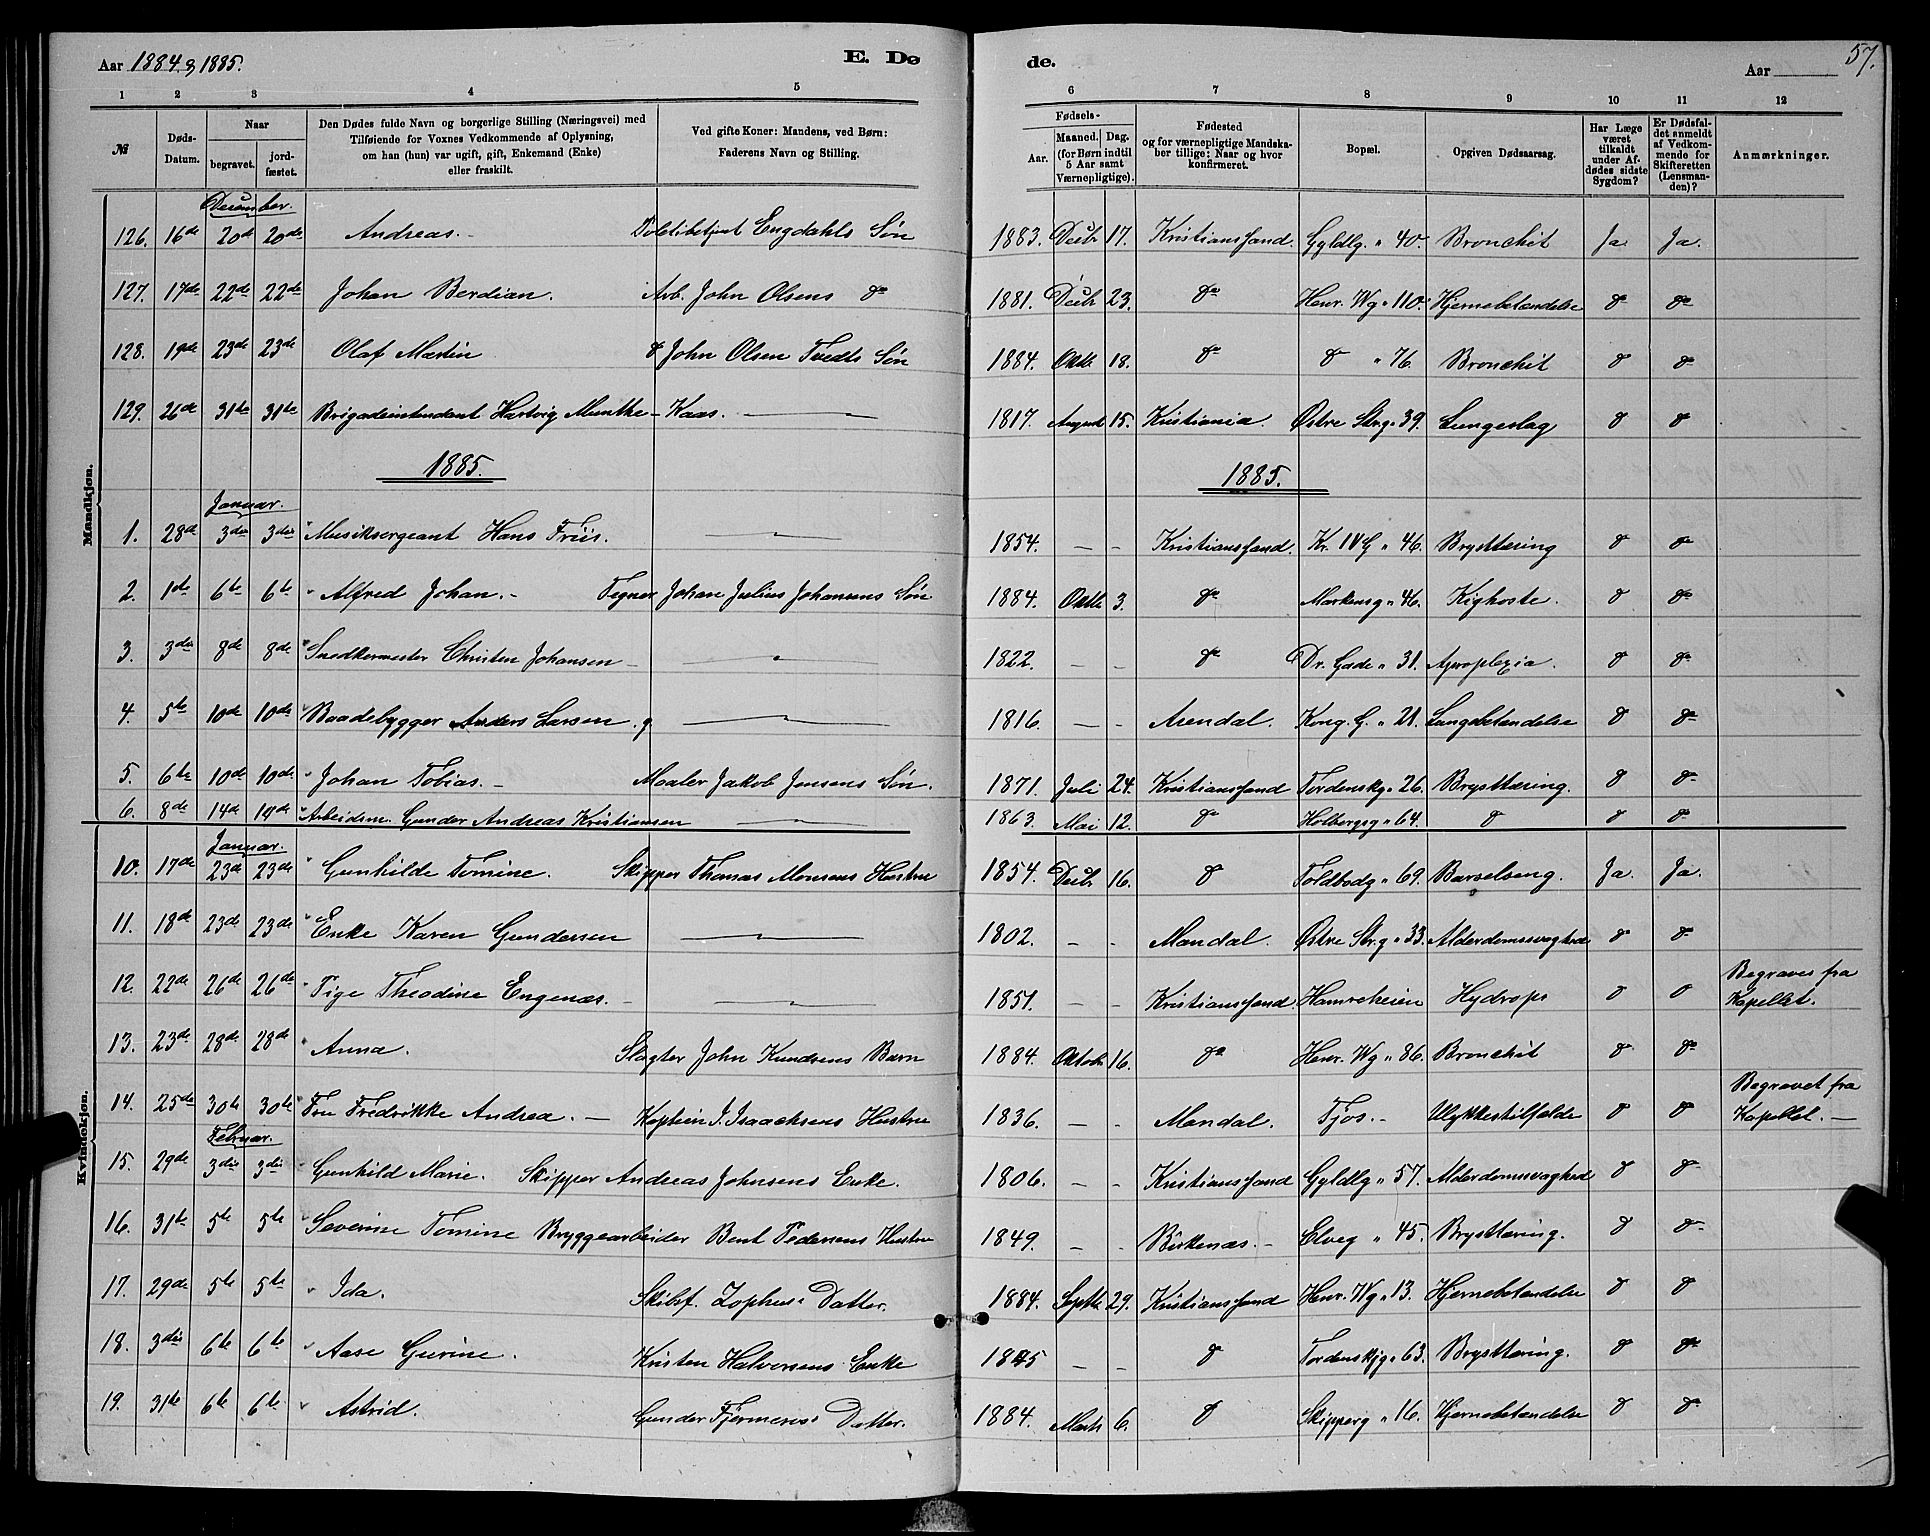 Aar 1884 & 1885. E. Dø de. Aar 57.
1 2 3 4 5 6 7 8 9 10 11 12
№ Døds-Datum. Naar begravet. jordfæstet. Den Dødes fulde Navn og borgerlige Stilling (Næringsvei) med Tilføiende for Voxnes Vedkommende af Oplysning, om han (hun) var ugift, gift, Enkemand (Enke) eller fraskilt. Ved gifte Koner: Mandens, ved Børn: Faderens Navn og Stilling. Fødsels- Aar. Maaned. Dag. (for Børn indtil 5 Aar samt Værnepligtige). Fødested og for værnepligtige Mandskaber tillige: Naar og hvor konfirmeret. Bopæl. Opgiven Dødsaarsag. Har Læge været tilkaldt under Afdødes sidste Sygdom? Er Dødsfaldet anmeldt af Vedkommende for Skifteretten (Lensmanden)? Anmærkninger.
Mandkjøn.
December.
126. 16de 20de 20de Andreas. Engdahls Søn 1883. Decbr 17. Kristianssand. Gyldlg. " 40. Bronchit Ja Ja.
127. 17de 22de 22de Johan Berdian. Arb. John Olsens do 1881. Decbr 23. do Henr. Wg " 110. Hjernebetændelse do do
128. 19de 23de 23de Olaf Martin do John Olsen Tvedts Søn 1884. Oktb 18. do do " 76. Bronchit do do
129. 26de 31te 31te Brigadeintendant Hartvig Munthe-Kaas. 1817. August 15. Kristiania. Østre Strg " 39. Lungeslag do do
1885. 1885.
Januar.
1. 28de 3die 3die Musiksergeant Hans Friis. 1854. — — Kristianssand. Kr. IV G " 46. Brysttæring do do
2. 1ste 6te 6te Alfred Johan. — Tegner Johan Julius Johansens Søn 1884. Oktb 3. do Markensg " 46. Kighoste. do do
3. 3die 8de 8de Snedkermester Christen Johansen — 1822. — — do Dr. Gade " 31. Apoplexia. do do
4. 5te 10de 10de Baadebygger Anders Larsen. g 1816. — — Arendal. Kong. G. " 21. Lungebetændelse do do
5. 6te 10de 10de Johan Tobias. — Maaler Jakob Jensens Søn. 1871. Juli 24. Kristianssand Tordenskg " 26. Brysttæring. do do
6. 8de 14de 14de Arbeidsm. Gunder Andreas Kristiansen 1863. Mai 12. do Holbergsg " 64. do do do
Kvindekjøn.
Januar.
10. 17de 23de 23de Gunhilde Tomine. Skipper Thomas Monsens Hustru 1854. Decbr 16. do Toldbodg " 69. Barselseng. Ja. Ja.
11. 18de 23de 23de Enke Karen Gundersen 1802. — — Mandal. Østre Str.g " 33. Alderdomssvaghed do do
12. 22de 26de 26de Pige Theodine Engenæs. — 1851. — — Kristianssand. Hamreheien Hydrops do do Begraves fra Kapellet.
13. 23de 28de 28de Anna. Slagter John Knudsens Barn 1884. Oktobr 16. do Henr. Wg " 86. Bronchit do do
14. 25de 30te 30te Fru Fredrikke Andrea. — Kaptein J. Isaachsens Hustru 1836. — — Mandal. Tjos. — Ulykkestilfælde do do Begravet fra Kapellet. —
Februar.
15. 29de 3die 3die Gunhild Marie. Skipper Andreas Johnsens Enke. 1806. — — Kristianssand Gyldlg " 57. Alderdomssvaghed do do
16. 31te 5te 5te Severine Tomine Bryggearbeider Bent Pedersens Hustru 1849. — — Birkenæs. — Elveg " 45. Brysttæring. do do
17. 29de 5te 5te Ida. Skibsf. Zophus' Datter. 1884. Septb 29. Kristianssand Henr. Wg " 13. Hjernebetændelse do do
18. 3die 6te 6te Aase Gurine. Kristen Halvorsens Enke 1845 — — do Tordenskjg " 63. Brysttæring. do do
19. 31te 6te 6te Astrid. Gunder Fjermeros' Datter. 1884. Marts 6. do Skipperg " 16. Hjernebetændelse do do